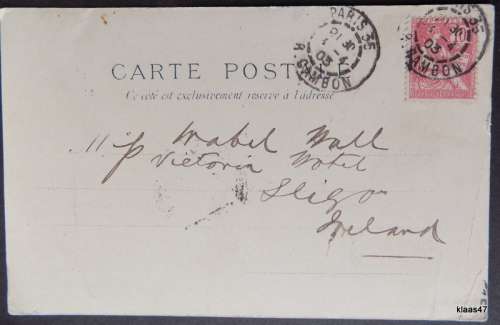 PARIS 35
R. GAMBON
PARIS 35
R. GAMBON
10
CARTE POSTALE
Ce côté est exclusivement réservé à l'adresse
Miss Mabel Wall
Victoria Hotel
Sligo
Ireland
klaas47